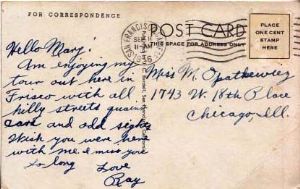 FOR CORRESPONDENCE
POST CARD
THIS SPACE FOR ADDRESS ONLY
PLACE
ONE CENT
STAMP
HERE
SAN FRANCISCO
11-AM
1936
Hello Mary!
Am enjoying my
tour out here in
Frisco with all
hilly streets quaint
cars and odd sights
Wish you were here
with me. I miss you
So long
Love
Ray
Miss M.
1743 W. 18th Place
Chicago, Ill.